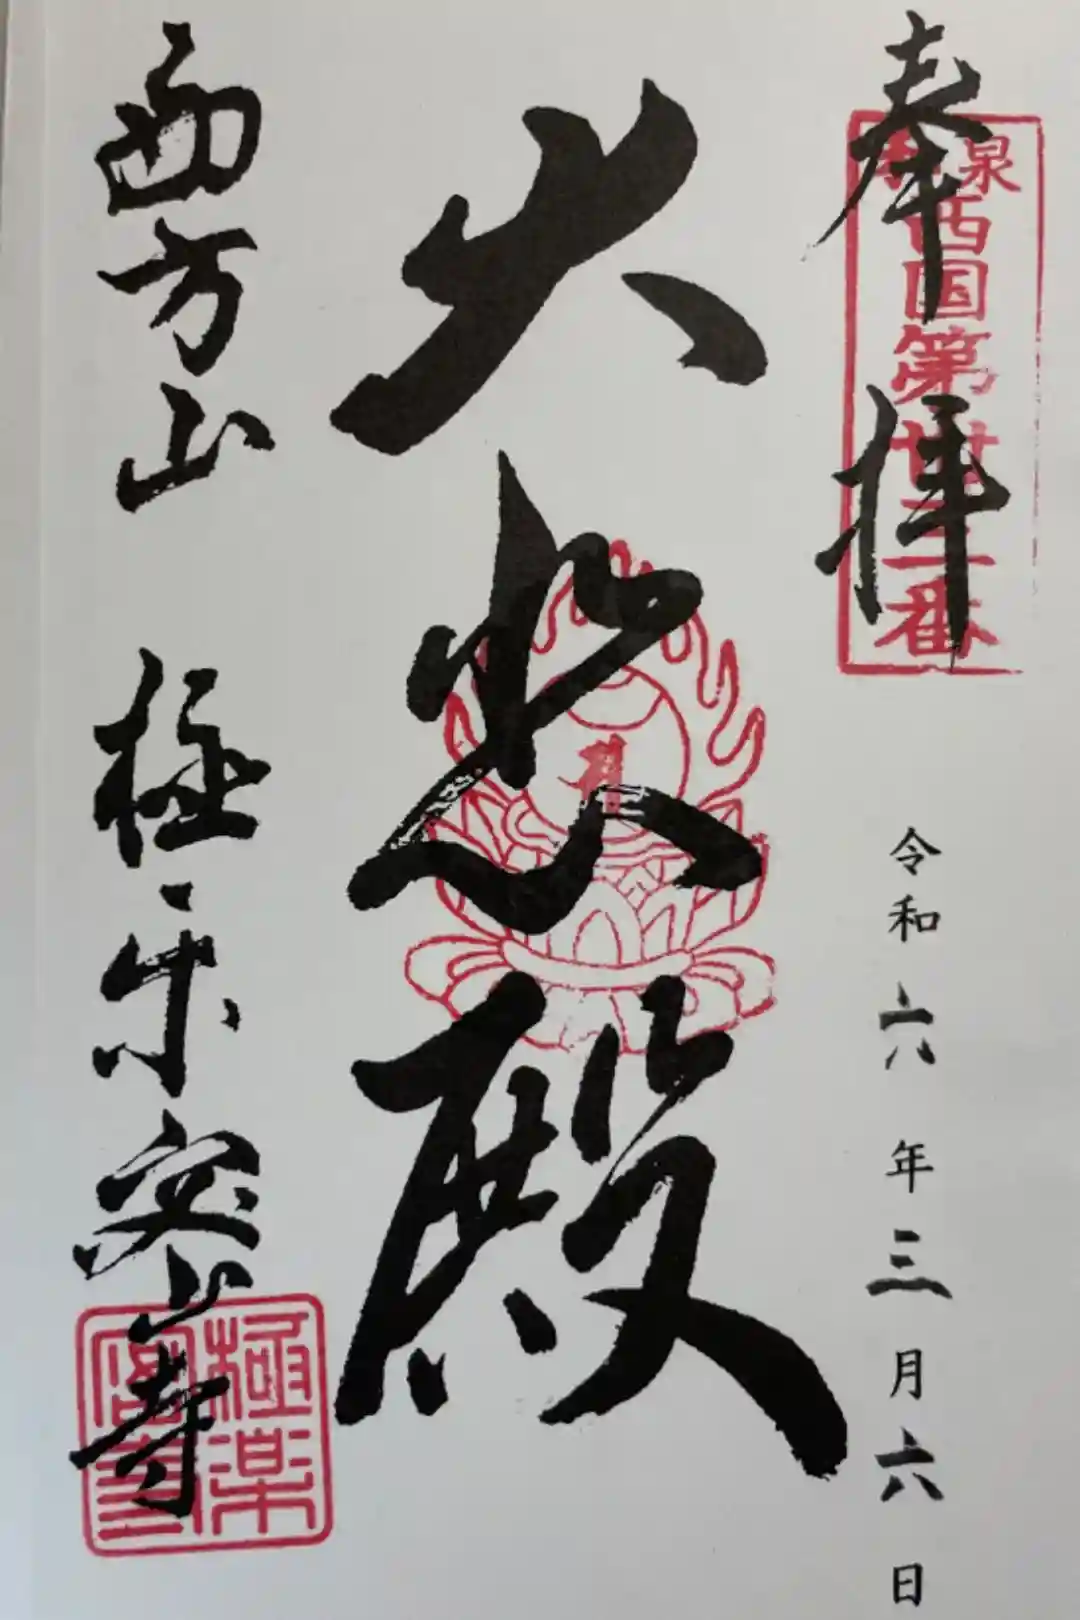 奉拝
泉
西国第
番
令和六年三月六日
大悲殿
西方山 極楽密寺
極楽
密寺